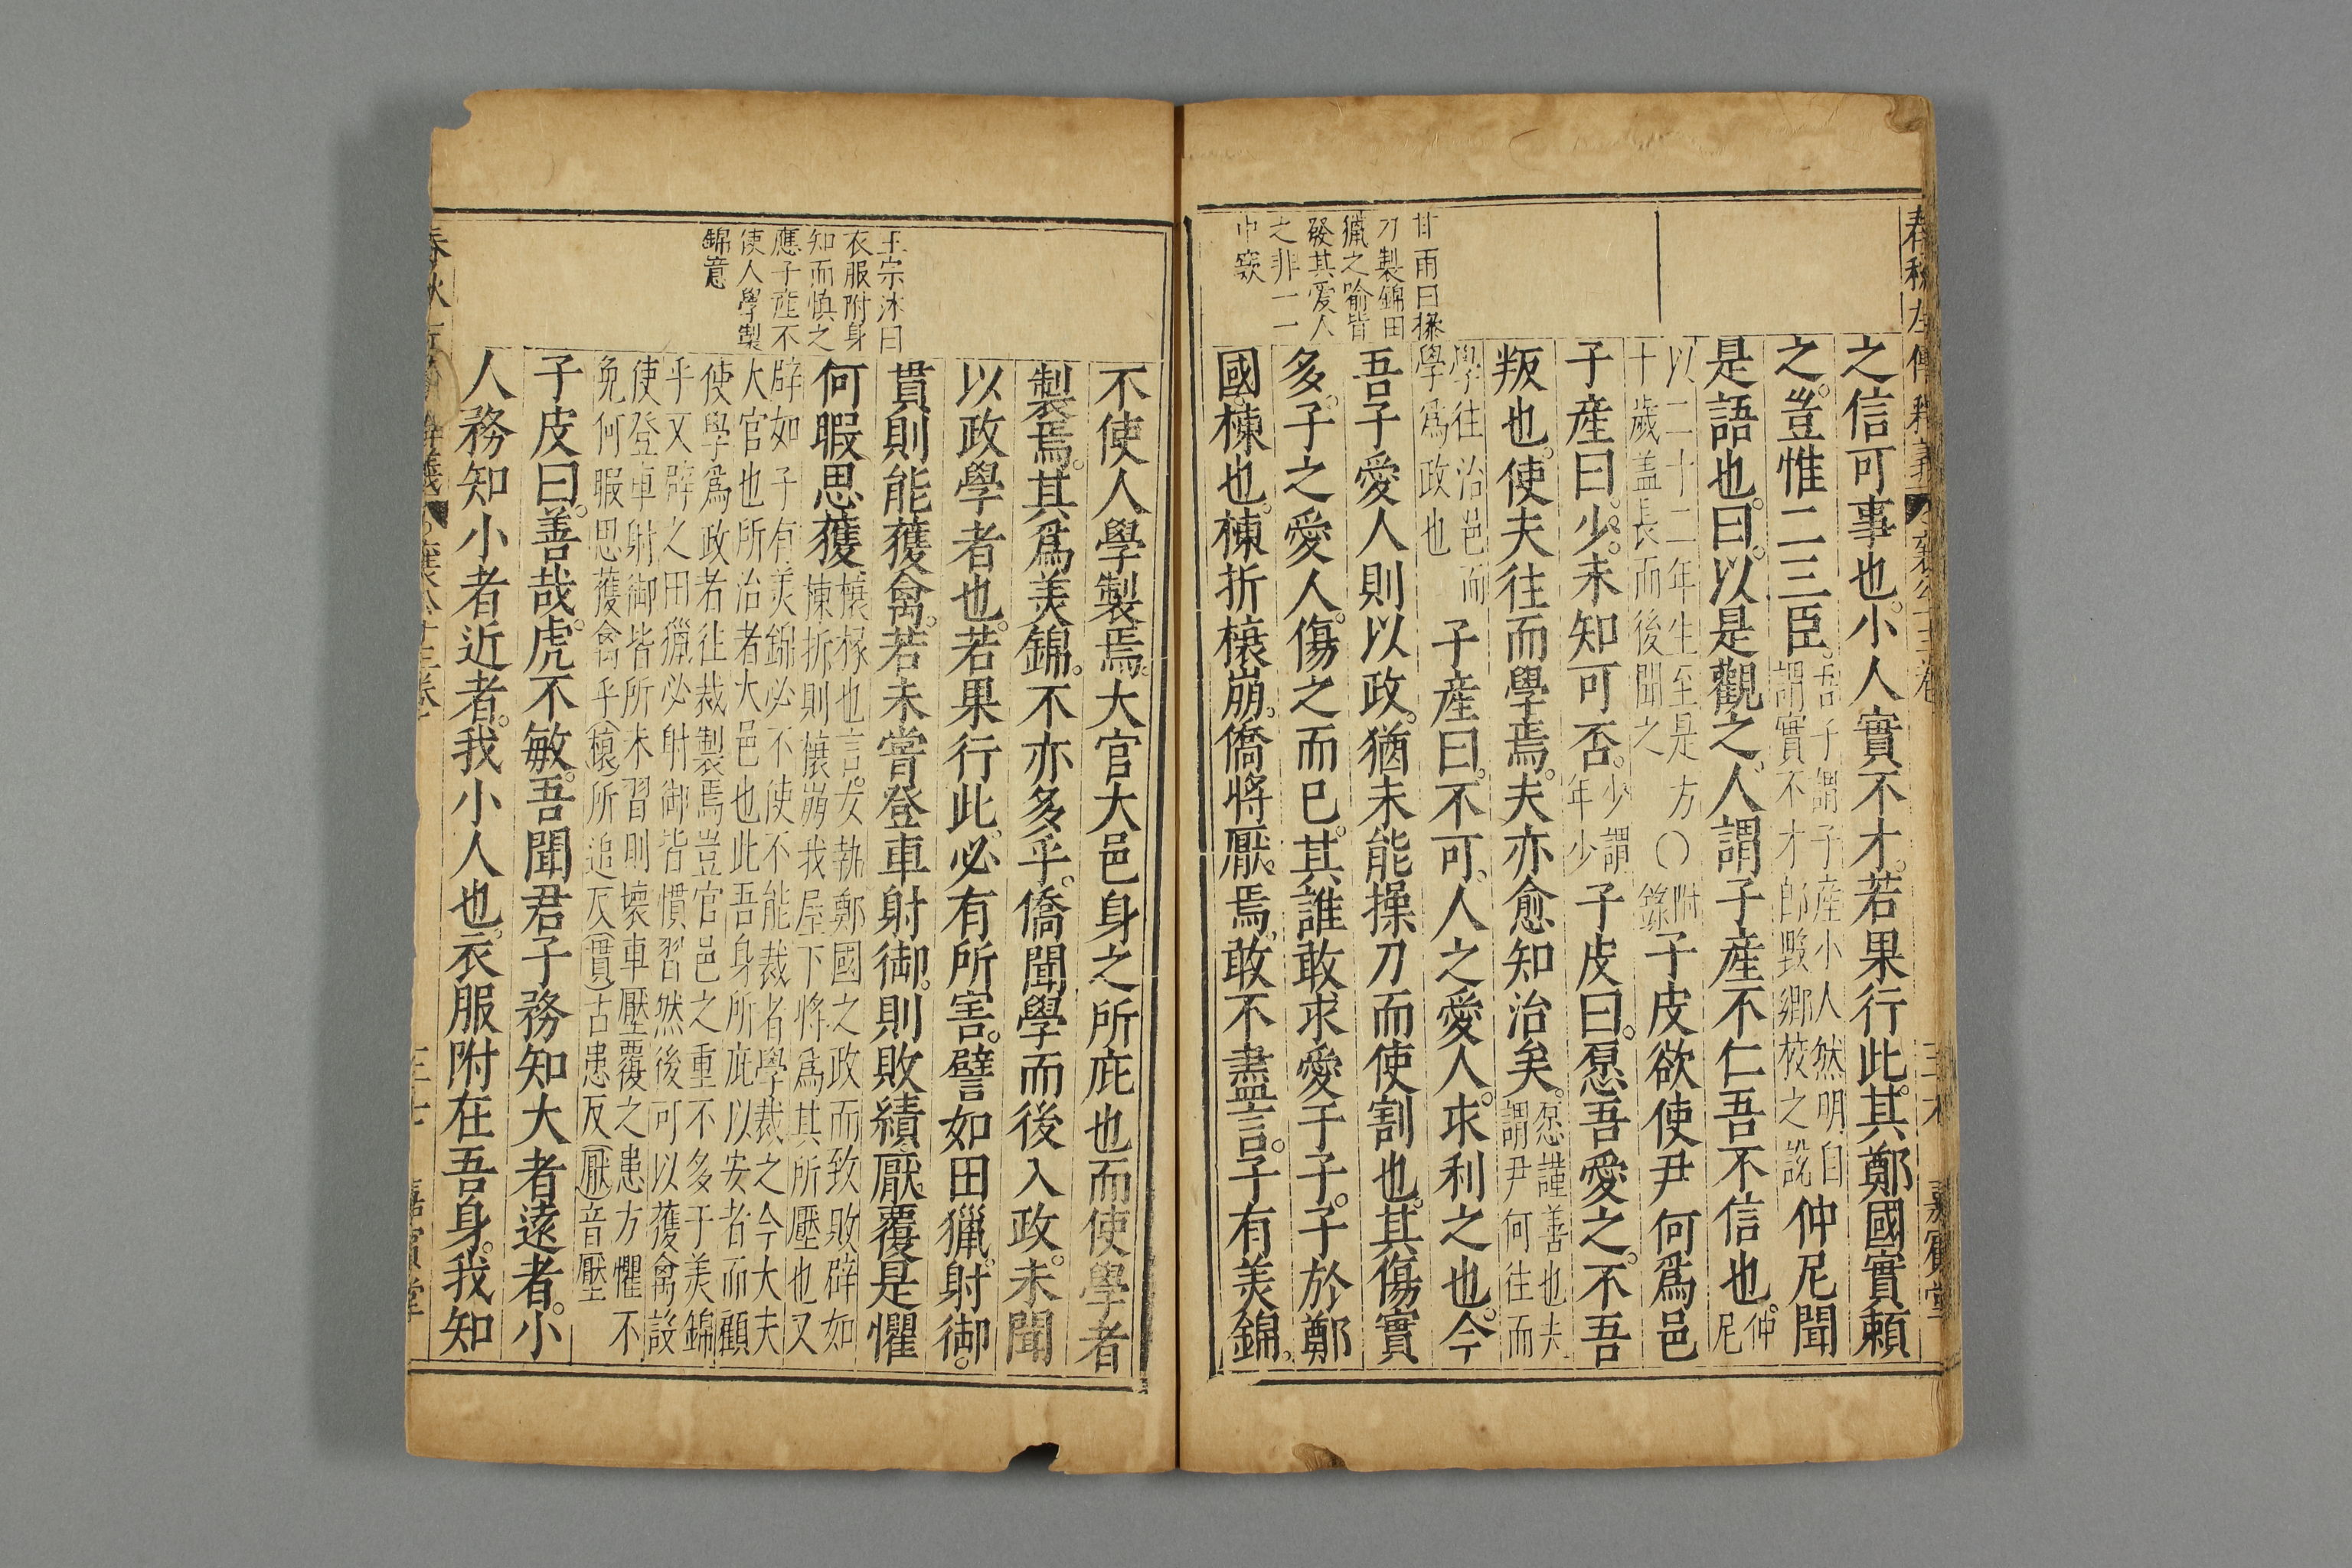 之信可事也小人實不才若果行此其鄭國實頼
之豈惟二三臣吾子謂子產小人然明自謂實不才即毀鄉校之說仲尼聞
是語也曰以是觀之人謂子產不仁吾不信也仲尼
以二十二年生至是方十歲盖長而後聞之〇附錄子皮欲使尹何爲邑
子產曰少未知可否少謂年少子皮曰愿吾愛之不吾
叛也使夫往而學焉夫亦愈知治矣愿謹善也夫謂尹何往而
學往治邑而學爲政也子產曰不可人之愛人求利之也今
吾子愛人則以政猶未能操刀而使割也其傷實
多子之愛人傷之而已其誰敢求愛于子子於鄭
國棟也棟折榱崩僑將厭焉敢不盡言子有美錦
甘雨曰操
刀製錦田
獵之喻皆
發其愛人
之非一一
中窾
不使人學製焉大官大邑身之所庇也而使學者
製焉其爲美錦不亦多乎僑聞學而後入政未聞
以政學者也若果行此必有所害譬如田獵射御
貫則能獲禽若未嘗登車射御則敗績厭覆是懼
何暇思獲榱椽也言女執鄭國之政而致敗辟如棟折則榱崩我屋下將爲其所壓也又
辟如子有美錦必不使不能裁者學裁之今大夫大官也所治者大邑也此吾身所庇以安者而顧
使學爲政者往裁製焉豈官邑之重不多于美錦乎又辟之田獵必射御皆慣習然後可以獲禽設
使登車射御皆所未習則壞車壓覆之患方懼不免何暇思獲禽乎榱所追反貫古患反厭音壓
子皮曰善哉虎不敏吾聞君子務知大者遠者小
人務知小者近者我小人也衣服附在吾身我知
王宗沐曰
衣服附身
知而慎之
應子產不
使人學製
錦意